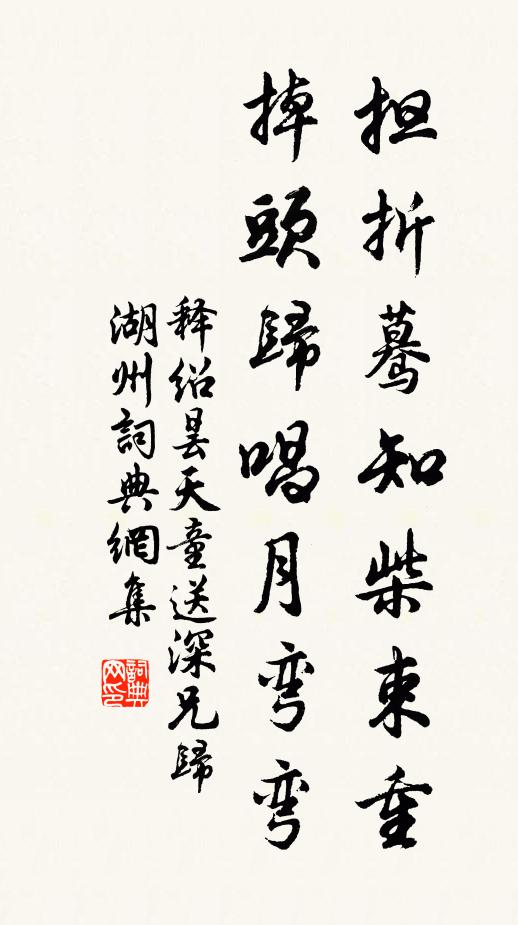 担折蓦知柴束重
掉頭歸唱月弯弯
释绍昙天童送深兄歸
湖州詞典網集
詞典网印